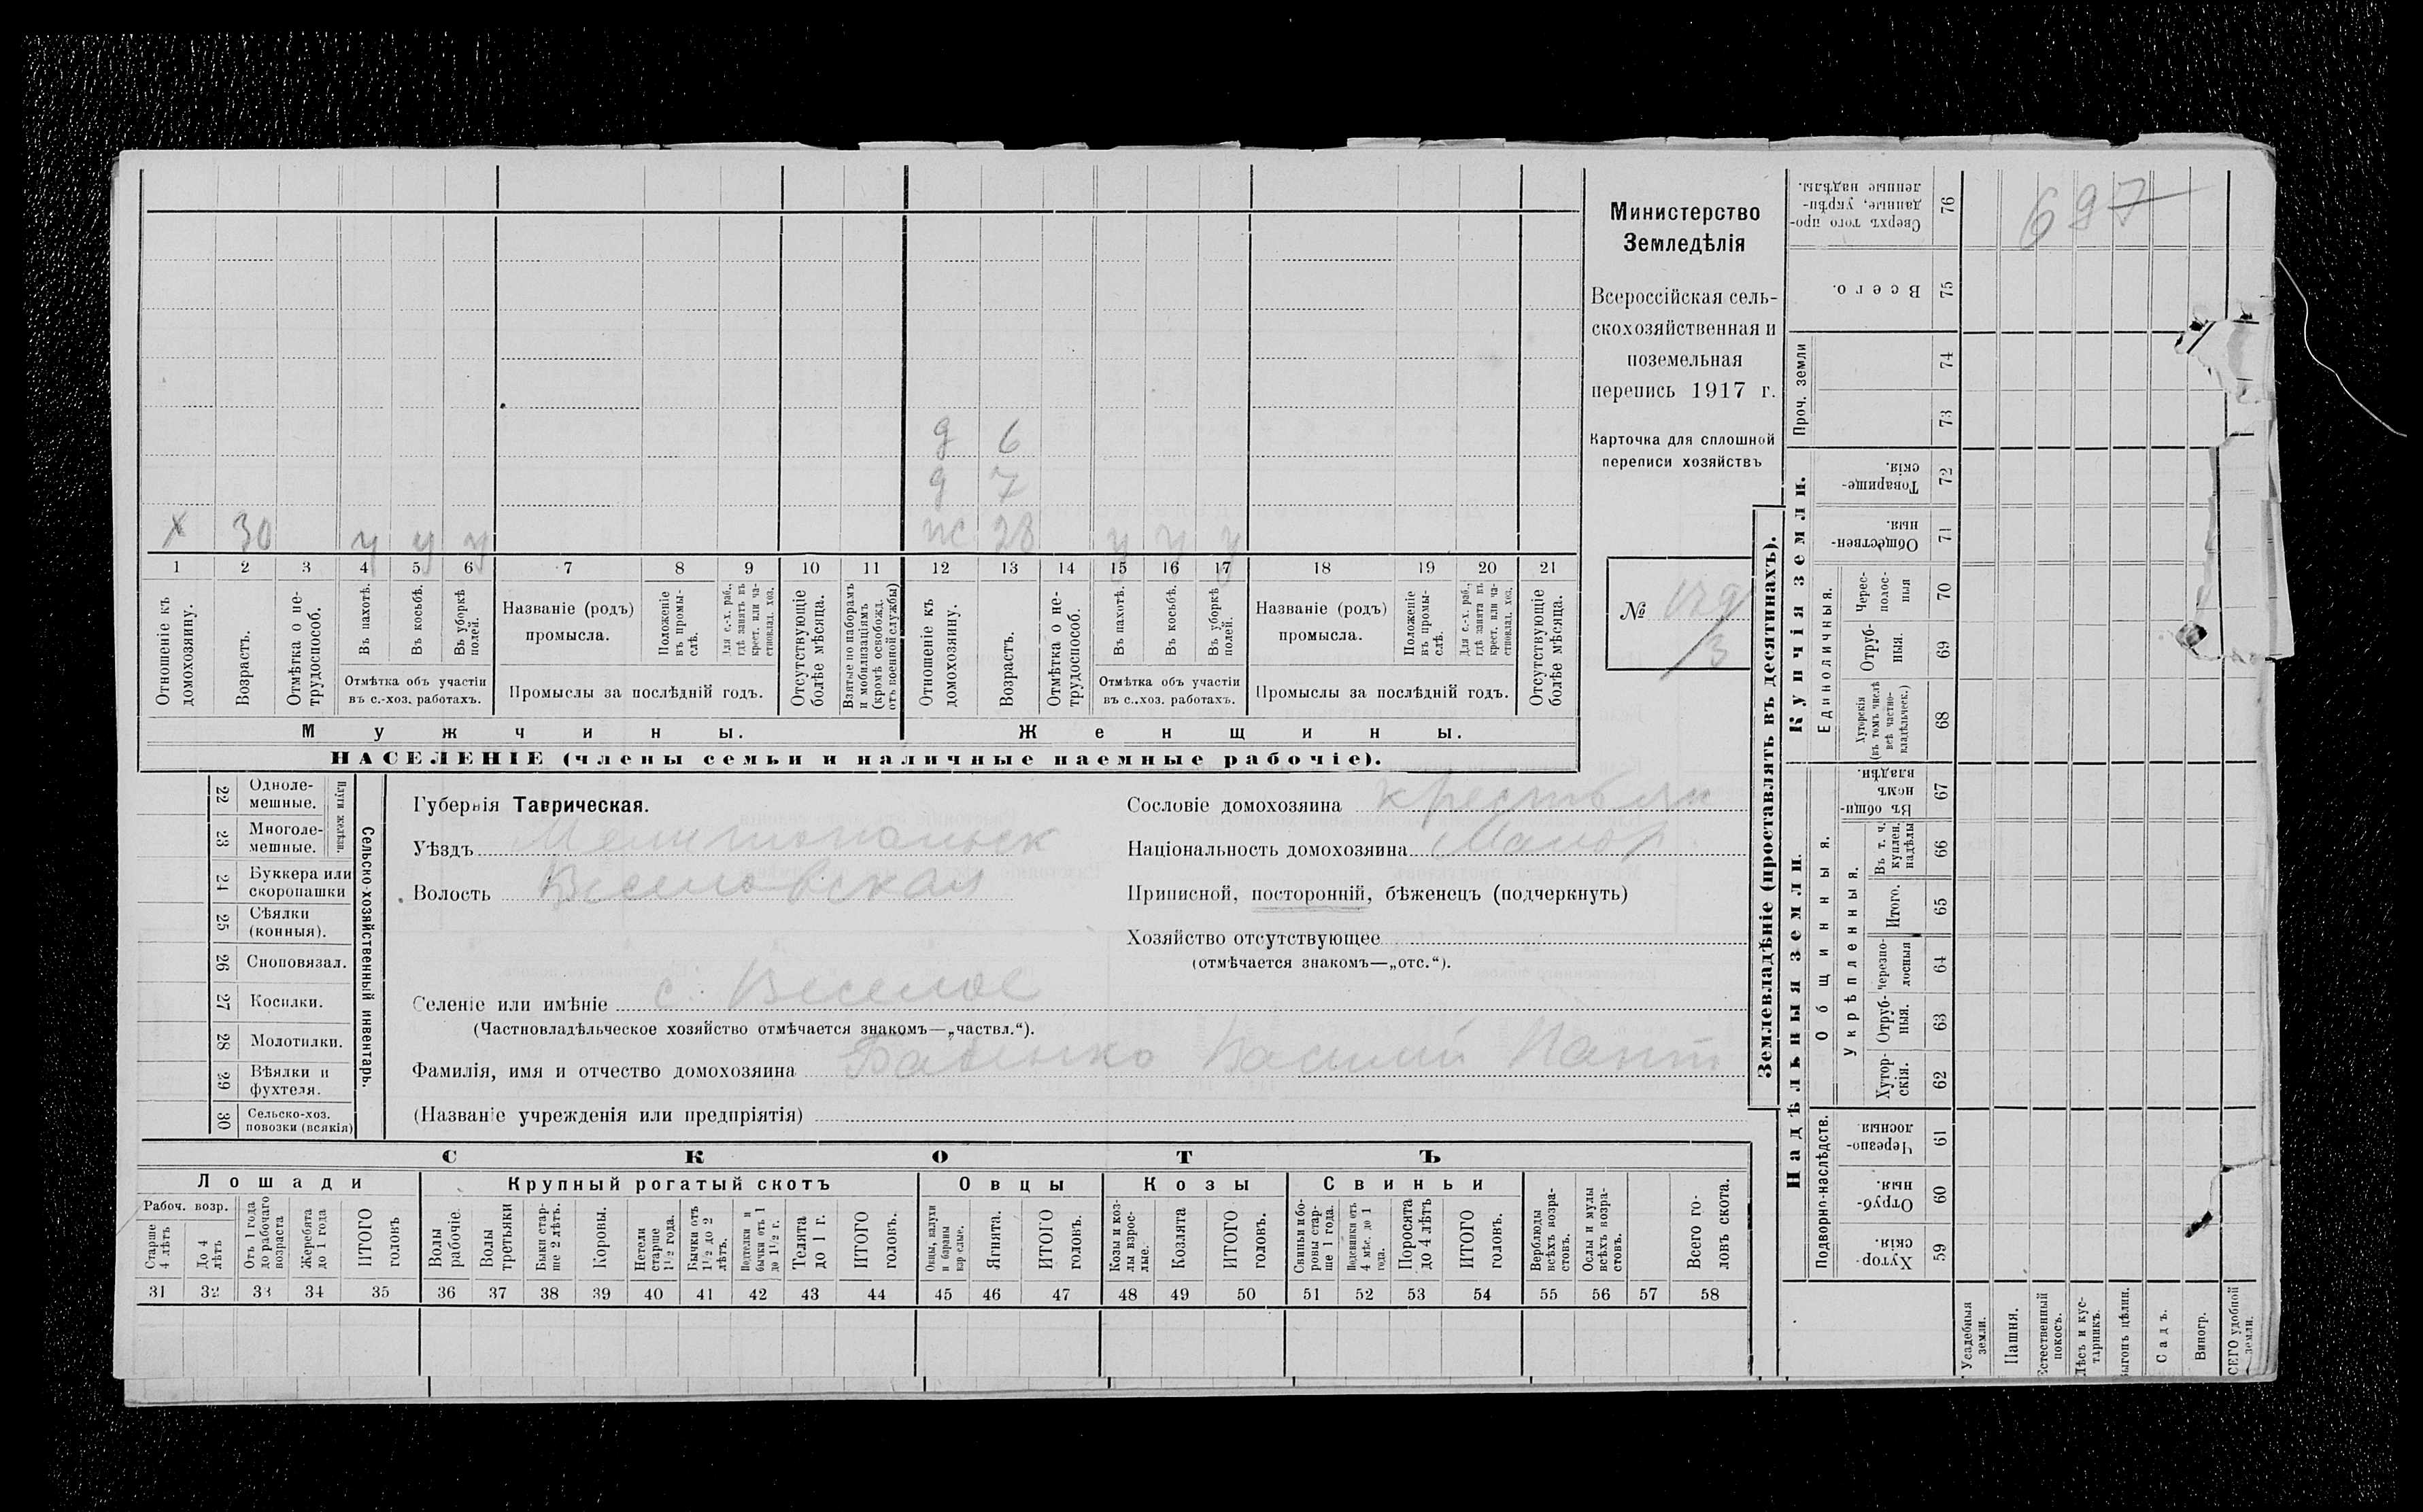 697
Министерство
Земледѣлія
Всероссійская сель-
скохозяйственная и
поземельная
перепись 1917 г.
Карточка для сплошной
переписи хозяйствъ
№ 129
3
д 6
д 7
х 30 у у у ж 28 у у у
1 2 3 4 5 6 7 8 9 10 11 12 13 14 15 16 17 18 19 20 21
Отношеніе къ домохозяину.
Возрастъ.
Отмѣтка о не-трудоспособ.
Въ пахотѣ.
Въ косьбѣ.
Въ уборкѣ полей.
Отмѣтка объ участіи
въ с.-хоз. работахъ.
Названіе (родъ)
промысла.
Положеніе въ промы-слѣ.
Для с.-х. раб., гдѣ занятъ въ крест. или ча-стновлад. хоз.
Промыслы за послѣдній годъ.
Отсутствующіе болѣе мѣсяца.
Взятые по наборамъ и мобилизаціямъ (кромѣ освобожд. отъ военной службы)
Отношеніе къ домохозяину.
Возрастъ.
Отмѣтка о не-трудоспособ.
Въ пахотѣ.
Въ косьбѣ.
Въ уборкѣ полей.
Отмѣтка объ участіи
въ с..хоз. работахъ.
Названіе (родъ)
промысла.
Положеніе въ промы-слѣ.
Для с.-х. раб., гдѣ занята въ крест. или ча-стновлад. хоз.
Промыслы за послѣдній годъ.
Отсутствующіе болѣе мѣсяца.
Мужчины. Женщины.
НАСЕЛЕНІЕ (члены семьи и наличные наемные рабочіе).
22 Одноле-мешные.
23 Многоле-мешные.
Плуги желѣзн.
24 Буккера или скоропашки
25 Сѣялки (конныя).
26 Сноповязал.
27 Косилки.
28 Молотилки.
29 Вѣялки и фухтеля.
30 Сельско-хоз. повозки (всякія)
Сельско-хозяйственный инвентарь.
Губернія Таврическая.
Уѣздъ Мелитопольск
Волость Веселовская
Селеніе или имѣніе с. Веселое
(Частновладѣльческое хозяйство отмѣчается знакомъ—„частвл.“).
Фамилія, имя и отчество домохозяина Василий Пант
(Названіе учрежденія или предпріятія)
Сословіе домохозяина крестьян
Національность домохозяина Малор.
Приписной, посторонній, бѣженецъ (подчеркнуть)
Хозяйство отсутствующее
(отмѣчается знакомъ—„отс.“).
СКОТЪ
Лошади Крупный рогатый скотъ Овцы Козы Свиньи
Рабоч. возр.
Старше 4 лѣтъ
До 4 лѣтъ
Отъ 1 года до рабочаго возраста
Жеребята до 1 года
ИТОГО головъ
Волы рабочіе.
Волы третьяки
Быки стар-ше 2 лѣтъ.
Коровы.
Нетели старше 1½ года.
Бычки отъ 1½ до 2 лѣтъ.
Подтелки и бычки отъ 1 до 1½ г.
Телята до 1 г.
ИТОГО головъ.
Овцы, валухи и бараны взрослые.
Ягнята.
ИТОГО головъ.
Козы и коз-лы взрос-лые.
Козлята
ИТОГО головъ.
Свиньи и бо-ровы стар-ше 1 года.
Подсвинки отъ 4 мѣс. до 1 года.
Поросята до 4 лѣтъ
ИТОГО головъ.
Верблюды всѣхъ возра-стовъ.
Ослы и мулы всѣхъ возра-стовъ.
Всего го-ловъ скота.
31 32 33 34 35 36 37 38 39 40 41 42 43 44 45 46 47 48 49 50 51 52 53 54 55 56 57 58
Землевладѣніе (проставлять въ десятинахъ).
Купчія земли.
Надѣльныя земли.
76 Сверхъ того про-данные, укрѣп-ленные надѣлы.
75 Всего.
Проч. земли
74
73
72 Товарище-скія.
71 Обществен-ныя.
Единоличныя.
70 Черес-полос-ныя
69 Отруб-ныя.
68 Хуторскія (въ томъ числѣ всѣ частно-владѣльческ.)
Общинныя.
67 Въ общи-номъ владѣн.
Укрѣпленныя.
66 Въ т. ч. куплен. надѣлы
65 Итого.
64 Черезпо-лосныя
63 Отруб-ныя.
62 Хутор-скія.
Подворно-наслѣдств.
61 Черезпо-лосныя
60 Отруб-ныя.
59 Хутор-скія.
Усадебныя земли.
Пашня.
Естественный покосъ.
Лѣсъ и кус-тарникъ.
ыгонъ цѣлин.
Садъ.
Виногр.
СЕГО удобной земли.